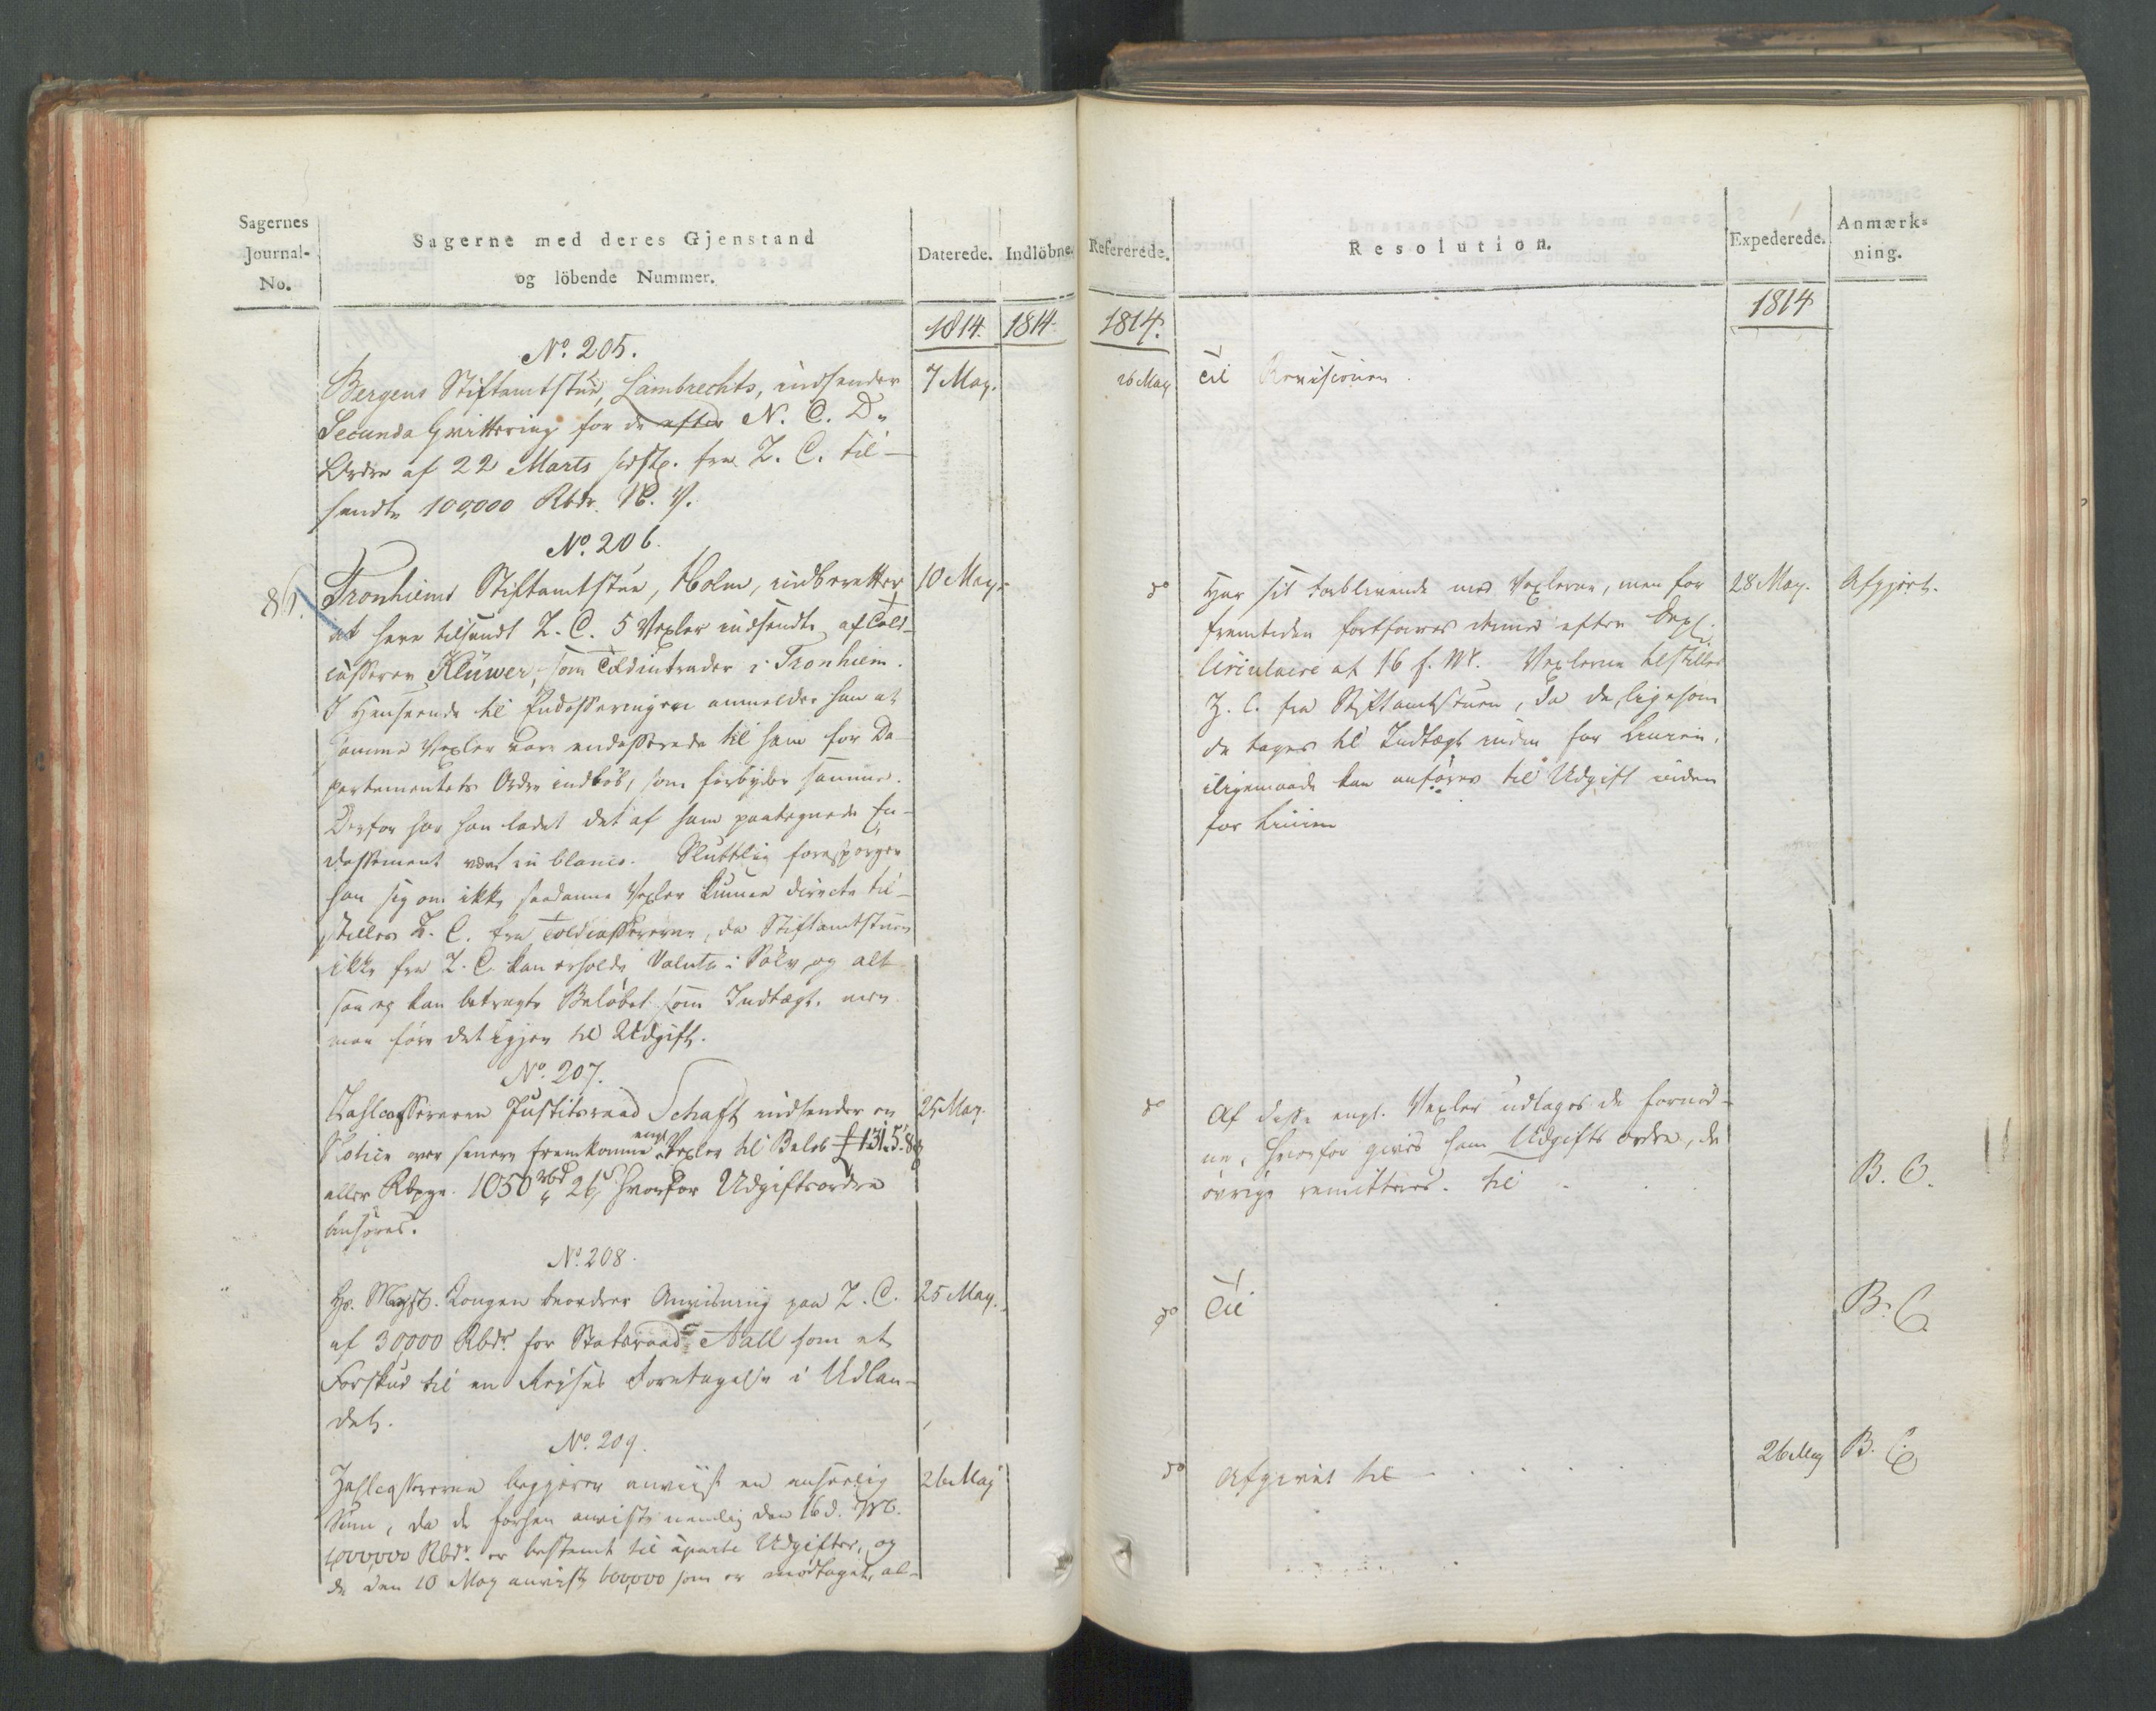 Sagernes
Journal-
No.
Sagerne med deres Gjenstand
og löbende Nummer.
Daterede.
Indlöbne.
1814.
1814
No. 205.
Bergens Stiftamtstue, Lambrechts, indsender
7 May.
Secunda Qvittering for de efter N. C. D.
Ordre af 22 Marts sidstl. fra Z. C. til-
sendte 100,000 Rbdr. N. V.
No. 206.
86.
Tronhiems Stiftamtstue, Holm, indberetter
10 May.
at have tilsendt Z. C. 5 Vexler indsendte af Told-
casserer Klüwer, som Toldintrader i Tronhiem.
I Henseende til Endosseringen anmelder han at
samme Vexler vare endosserede til ham før De-
partementets Ordre indløb, som forbyder samme.
Derfor har han ladet det af ham paategnede En-
dossement være in blanco. Sluttelig forespørger
han sig om ikke saadanne Vexler kunne directe til-
stilles Z. C. fra Toldcassererne, da Stiftamtstuen
ikke fra Z. C. kan erholde Valuta i Sølv og alt-
saa ej kan betragte Beløbet som Indtægt, men
maa føre det igjen til Udgift.
No. 207.
Zahlcassereren Justitsraad Schaft indsender en
25 May.
Notice over senere fremkomne engl. Vexler til Beløb £ 131.5.8
eller Rdpge. 1050 rbd 26 s hvorfor Udgiftsordre
behøves.
No. 208.
Hs. Majst. Kongen beordrer Anvisning paa Z. C.
25 May.
af 30,000 Rbdr for Statsraad Aall som et
Forskud til en Rejses Foretagelse i Udlan-
det.
No. 209.
Zahlcassereren begjærer anviist en anseelig
26 May
Sum, da de forhen anviste nemlig den 16 d. M.
1,000,000 Rbdr. er bestemt til aparte Udgifter, og
de den 10 May anviste 600,000 som er modtaget, al-
Refererede.
Resolution.
Expederede.
Anmærk-
ning.
1814.
1814
26 May
Til Revisionen.
do
Har sit Forblivende med Vexlerne, men for
28 May.
Afgjort.
fremtiden forholdes dermed efter Dept.
Circulaire af 16 f. M. Vexlerne tilstilles
Z. C. fra Stiftamtstuen, da de, ligesom
de tages til Indtægt inden for Linien,
iligemaade kan anføres til Udgift inden
for Linien
do
Af disse engl. Vexler udtages de fornød-
ne, hvorfor gives ham Udgifts ordre, de
øvrige remitteres til
B. C.
do
Til
B. C.
do
Afgivet til
26 May
B. C.